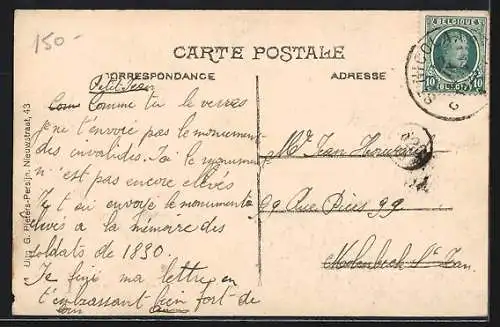 150-
BELGIQUE
10 BELGIË 10
ST NICOLAS
CARTE POSTALE
CORRESPONDANCE
ADRESSE
Petit Jean
Com Comme tu le verras
je ne t'envoie pas le monument
des invalides. Car le monument
n'est pas encore élevés
Je t'ai envoye le monument
élevés a la mémoire des
soldats de 1830.
Je fini ma lettre en
t'embrassant bien fort de
Mr Jean
99 Rue Piers 99
Molenbeek St Jean.
Uitg. G. Pieters-Persijn, Nieuwstraat, 43